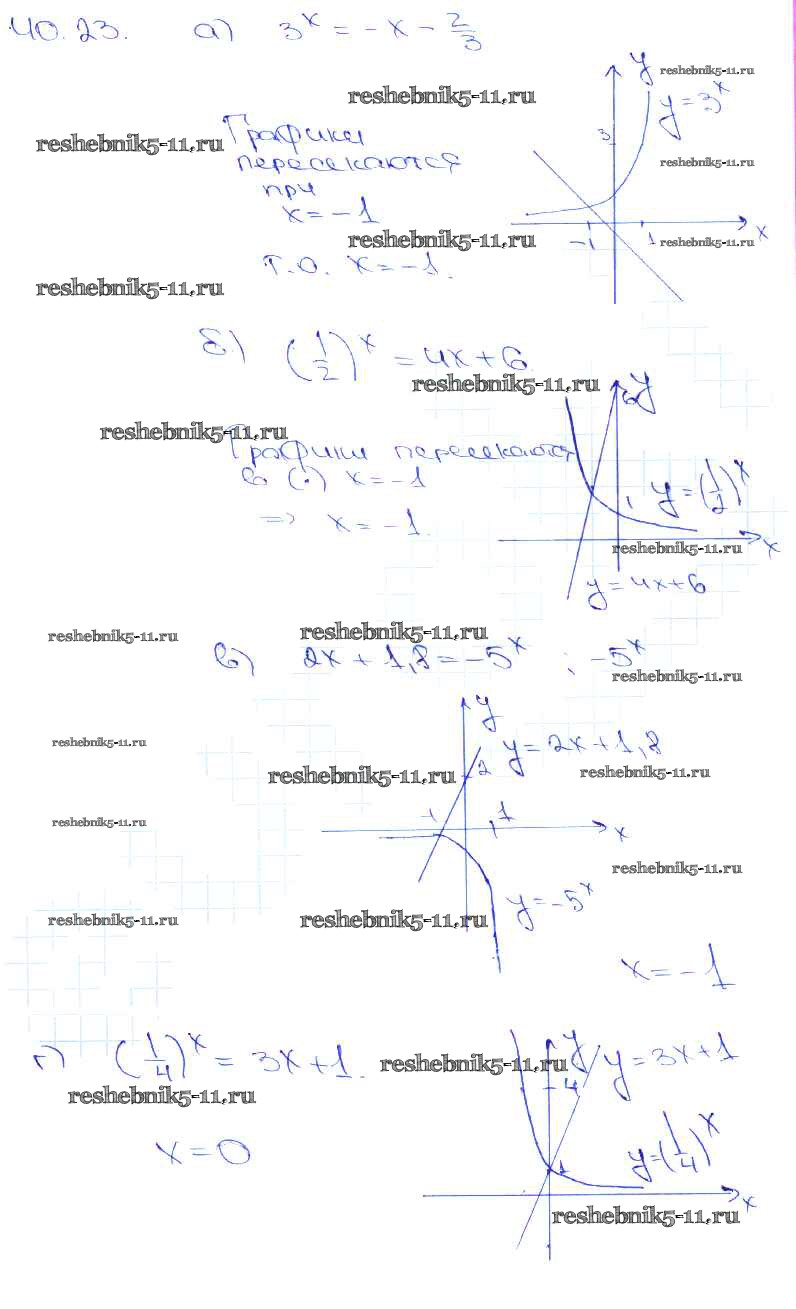 40.23. а) 3^x = -x - 2/3
y
reshebnik5-11.ru
reshebnik5-11.ru
y=3^x
Графики
reshebnik5-11.ru
3
пересекаются
reshebnik5-11.ru
при
x=-1
reshebnik5-11.ru
-1 1 x
reshebnik5-11.ru
т.о. x=-1.
reshebnik5-11.ru
б) (1/2)^x = 4x+6
reshebnik5-11.ru
6 y
reshebnik5-11.ru
Графики пересекаются
в (·) x=-1
1 y=(1/2)^x
=> x=-1.
reshebnik5-11.ru
x
y=4x+6
reshebnik5-11.ru
reshebnik5-11.ru
в) 2x+1,8=-5^x ; -5^x
reshebnik5-11.ru
y
reshebnik5-11.ru
y=2x+1,8
2
reshebnik5-11.ru
reshebnik5-11.ru
reshebnik5-11.ru
-1 1 x
reshebnik5-11.ru
y=-5^x
reshebnik5-11.ru
reshebnik5-11.ru
x=-1
г) (1/4)^x = 3x+1.
reshebnik5-11.ru
y
y=3x+1
4
reshebnik5-11.ru
x=0
1
y=(1/4)^x
x
reshebnik5-11.ru